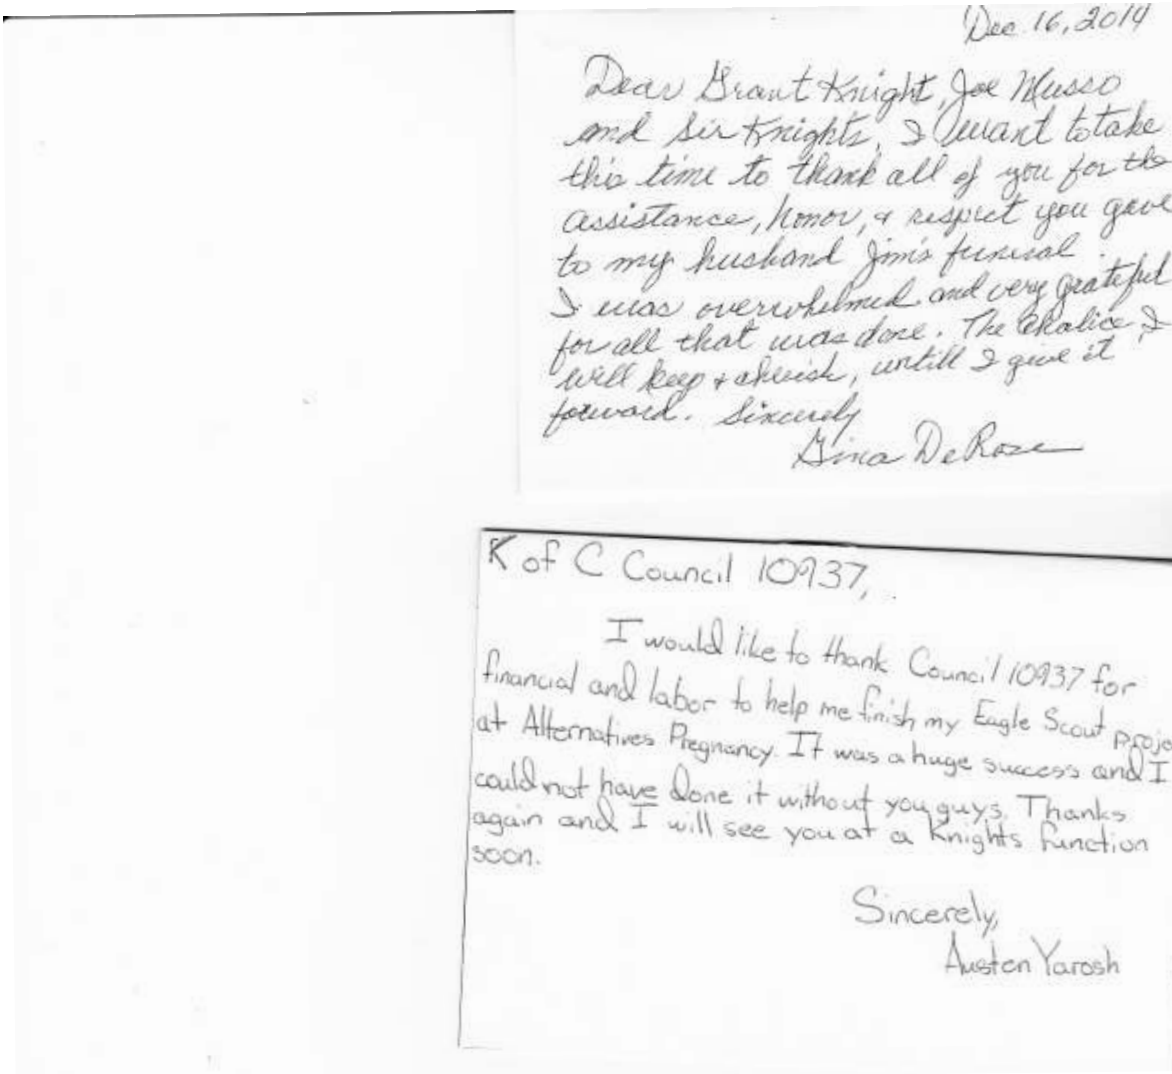 Dec 16, 2014
Dear Grant Knight, Joe Musso
and Sir Knights, I want to take
this time to thank all of you for the
assistance, honor, & respect you gave
to my husband Jim's funeral.
I was overwhelmed and very grateful
for all that was done. The Chalice I
will keep & cherish, untill I give it
forward. Sincerely
Gina DeRose
K of C Council 10937,
I would like to thank Council 10937 for
financial and labor to help me finish my Eagle Scout proje
at Alternatives Pregnancy. It was a huge success and I
could not have done it without you guys. Thanks
again and I will see you at a Knights function
soon.
Sincerely,
Austen Yarosh